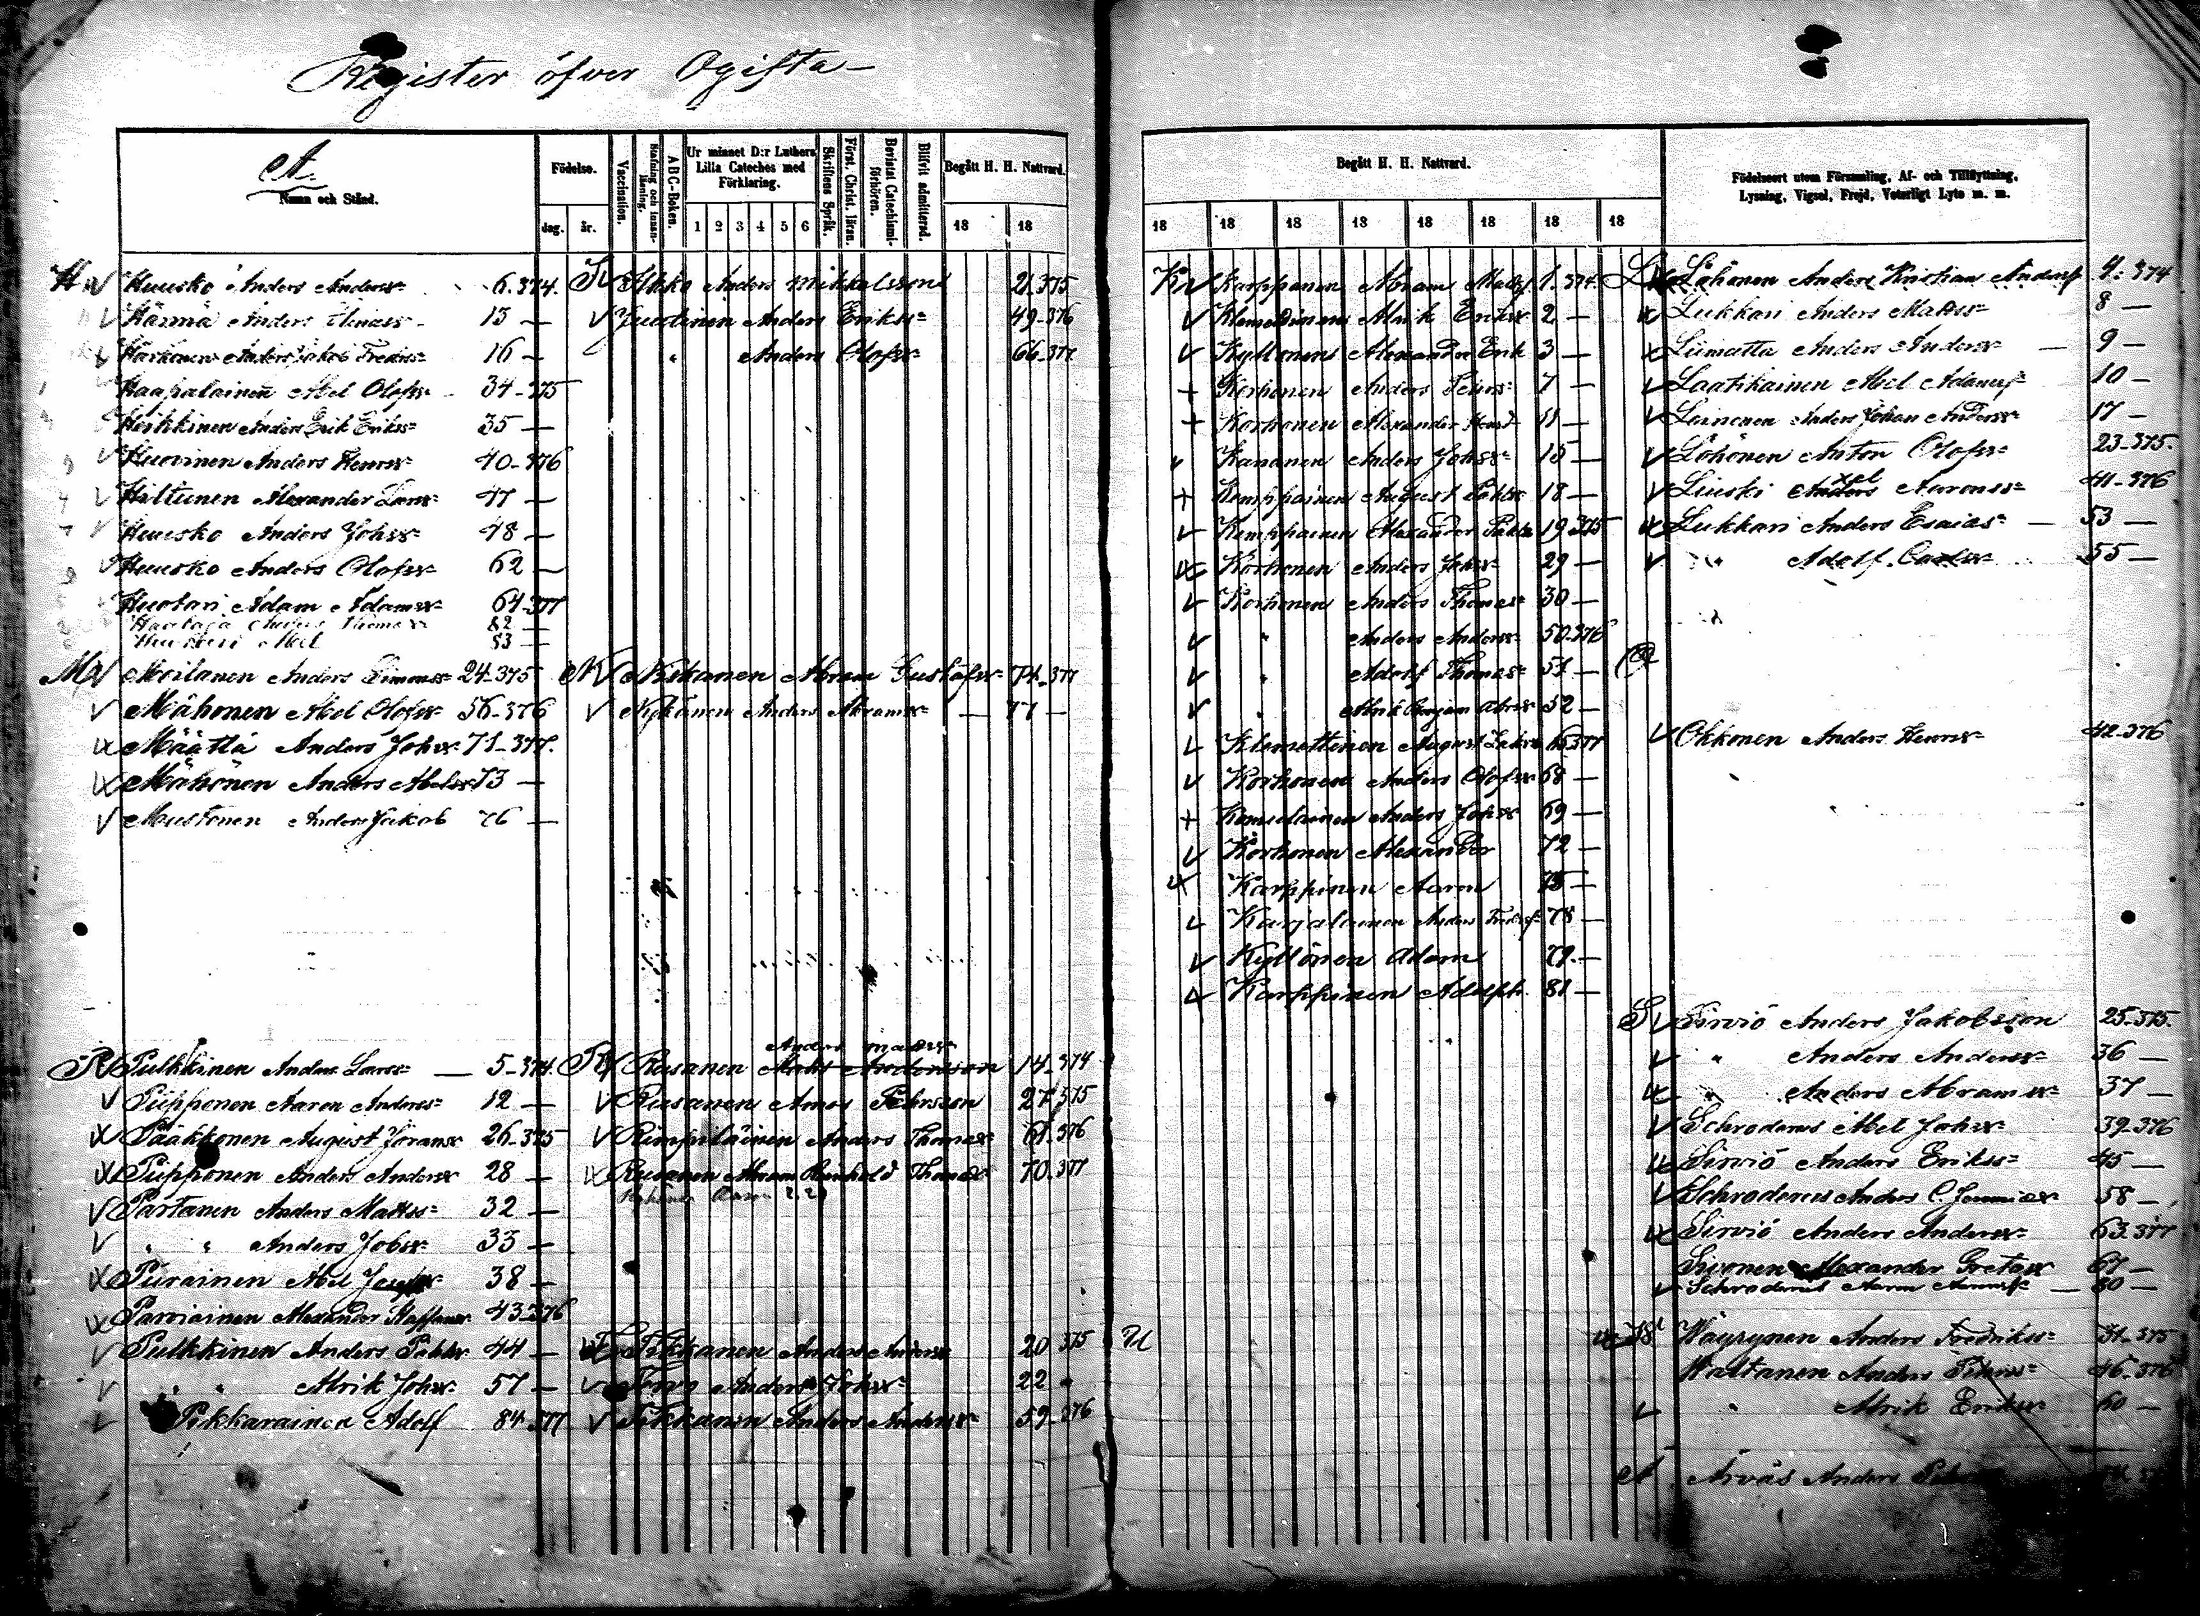 Register öfver Ogifta
A.
Namn och Stånd.
Födelse.
dag. år.
Vaccination.
Stafning och innan-läsning.
ABC-Boken.
Ur minnet D:r Luthers Lilla Cateches med Förklaring.
1 2 3 4 5 6
Skriftens Språk.
Först. Christ. läran.
Bevistat Catechismi-förhören.
Blifvit admitterad.
Begått H. H. Nattvard.
18 18
H. Huusko Anders Anderss- 6.374.
Härmä Anders 13 —
Härkönen Anders Jakob Fredrss- 16 —
Haapalainen Abel Olofss- 34-375
Heikkinen Anders Erik Erikss- 35 —
Huovinen Anders Henrss- 40-376
Hiltunen Alexander Larss- 47 —
Huusko Anders Johss- 48 —
Huusko Anders Olofss- 62 —
Huotari Adam Adamss- 64-377
Haataja Thomass- 82 —
Abel 83 —
M Moilanen Anders Simonss- 24-375
Mähönen Abel Olofss- 56-376
Määttä Anders Johss- 71-377.
Mähönen Anders Abelss- 73 —
Mustonen Anders Jakob 76 —
P Pulkkinen Anders Larss- — 5-374.
Piipponen Aaron Anderss- 12 —
Pääkkönen August Göranss- 26-375
Piipponen Anders Anderss- 28 —
Partanen Anders Matss- 32 —
" " Anders Jobss- 33 —
Piirainen Abel 38 —
Parviainen Alexander Staffanss- 43-376
Pulkkinen Anders Pahlss- 44 —
" " Alrik Johss- 57 —
Pikkarainen Adolf 84-377
Anders Mikkelsson 21.375
Juntinen Anders Erikss- 49-376
" Anders Olofss- 66-377
N Niskanen Abram Gustafss- 74-377
Nykänen Anders Abramss- — 77 —
Anders Matss-
R Rusanen Mats Andersson 14-374
Rusanen Amos Pehrsson 27-375
Rimpiläinen Anders Thomass- 61-376
Rusanen Abram Reinhold Thomss- 70.377
T Tikkanen Anders Anderss- 20 375
Anders Johss- 22 "
Tikkanen Anders Anderss- 59-376
Begått H. H. Nattvard.
18 18 18 18 18 18 18 18
Födelseort utom Församling, Af- och Tillflyttning, Lysning, Vigsel, Frejd, Veterligt Lyte m. m.
K Karppanen Abram Matss- 1.374.
Klemettinen Alrik Erikss- 2 —
Kyllönen Alexander Erik 3 —
Korhonen Anders Petterss- 7 —
Korhonen Alexander Henrd 11 —
Kananen Anders Johss- 15 —
Kemppainen August Pahlss- 18 —
Kemppainen Alexander Pahlss 19.375
Korhonen Anders Johss- 29 —
Korhonen Anders Thomas- 30 —
" Anders Anderss- 50.376
" Adolf Thomas- 51 —
" Alrik Benjam 52 —
Klemettinen August 65.377
Korhonen Anders Olofss- 68 —
Komulainen Anders Johss 69 —
Korhonen Alexander 72 —
Karppinen Aaron 75 —
Karjalainen Anders Fredrss- 78 —
Kyllönen Adam 79. —
Karppinen Adolph 81 —
U
L Löhönen Anders Kristian Anderss- 4. 374
Lukkari Anders Matss- 8 —
Liimatta Anders Anderss- — 9 —
Laatikainen Abel Adamss- 10 —
Leinonen Anders Johan Anderss- 17 —
Löhönen Anton Olofss- 23-375.
Axel
Liuski Anders Aaronss- 41-376
Lukkari Anders Esaias- — 53 —
" Adolf Carlss- 55 —
O
Okkonen Anders Henrss- 42-376
S Sirviö Anders Jakobsson 25-375.
" Anders Anderss- 36 —
" Anders Abramss- 37 —
Schroderus Abel Johss- 39-376
Sirviö Anders Erikss- 45 —
Schroderus Anders C. 58 —
Sirviö Anders Anderss- 63.377
Sivonen Alexander Gretass 67 —
Schroderus Aaron — 80 —
Wäyrynen Anders Fredrikss- 31-375
Waltanen Anders Petterss- 46-376
" Alrik Erikss- 60 —
A Arvas Anders